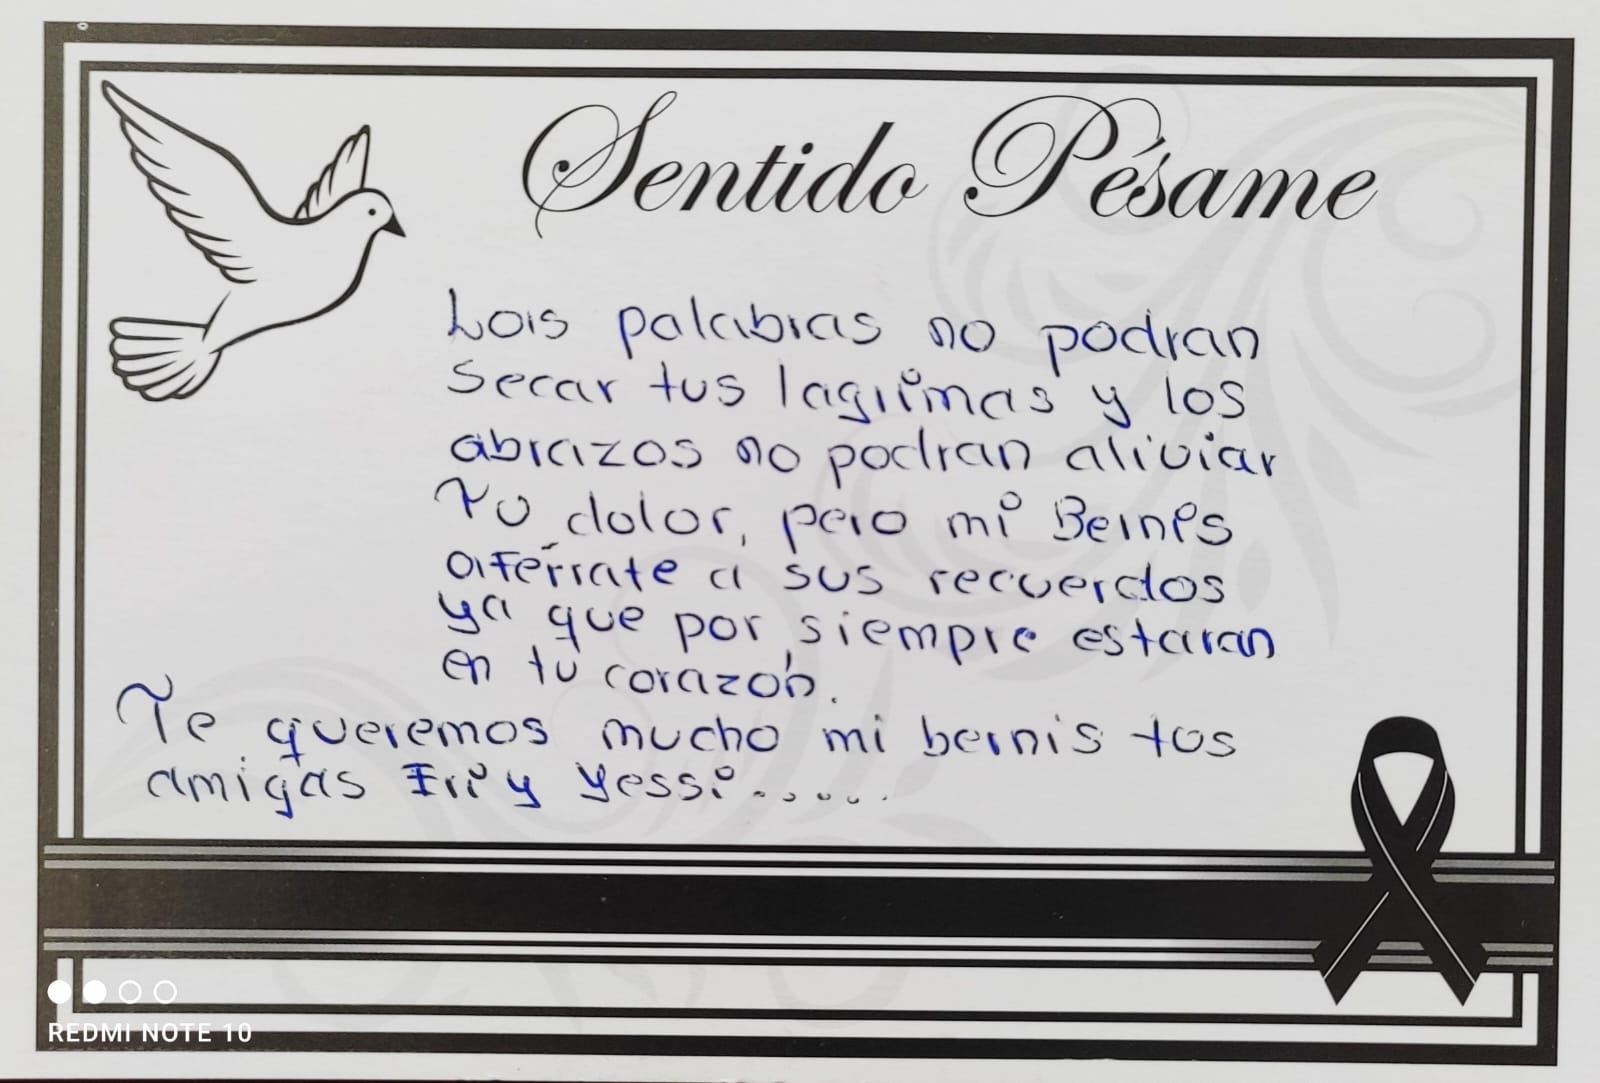 Sentido Pésame
Las palabras no podran
secar tus lagrimas y los
abrazos no podran aliviar
Tu dolor, pero mi Bernis
aferrate a sus recuerdos
ya que por siempre estaran
en tu corazón.
Te queremos mucho mi bernis tus
amigas Iri y Yessi......
REDMI NOTE 10